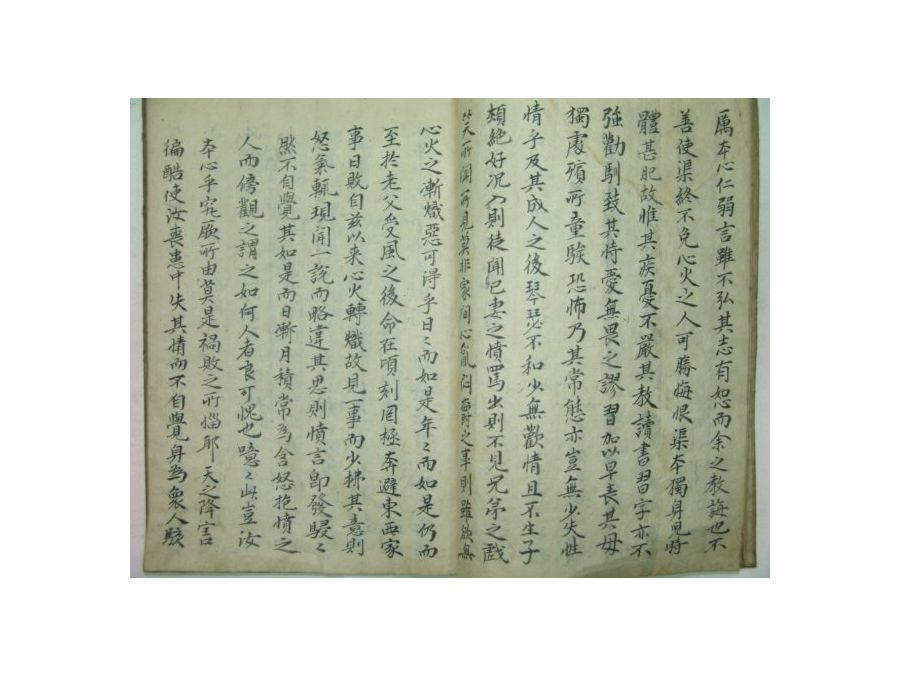 厲本心仁弱言雖不弘其志有恕而余之教誨也不
善使渠終不免心火之人可勝悔恨渠本獨身兒時
體甚肥故惟其疾憂不嚴其教讀書習字亦不
強勸馴致其恃愛無畏之謬習加以早喪其母
獨處殯所童騃恐怖乃其常態亦豈無少失性
情乎及其成人之後琴瑟不和少無歡情且不生子
頗絶好況入則徒聞己妻之憤罵出則不見兄弟之戲
笑所聞所見莫非家間心亂之事則雖欲無
心火之漸熾惡可得乎日〻而如是年〻而如是仍而
至於老父受風之後命在頃刻罔極奔避東西家
事日敗自玆以來心火轉熾故見一事而少拂其意則
怒氣輒現聞一說而略違其思則憤言卽發駸〻
然不自覺其如是而日漸月積常爲含怒抱憤之
人而傍觀之謂之如何人者良可愧也噫〻此豈汝
本心乎究厥所由莫是禍敗之所惱耶天之降害
偏酷使汝喪患中失其情而不自覺身爲衆人駭